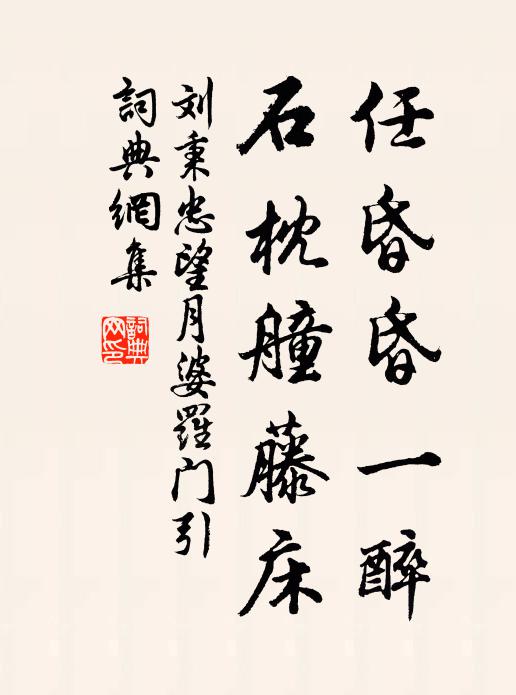 任昏昏一醉
石枕艟藤床
刘秉忠望月婆羅门引
詞典網集
詞典网印